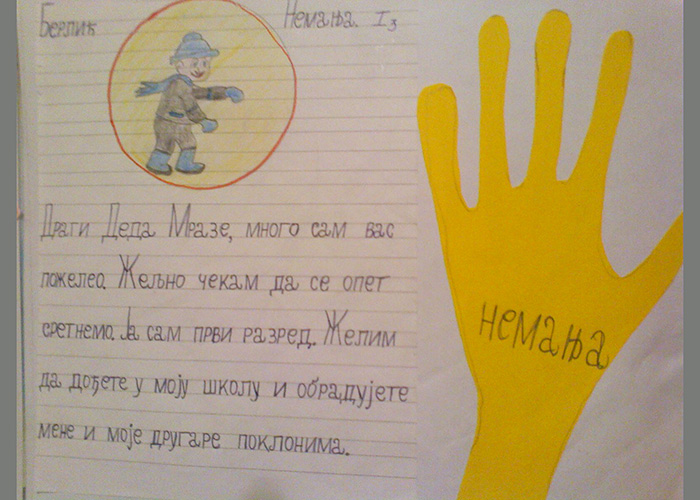 Берлић Немања. I3
Драги Деда Мразе, много сам вас
пожелео. Жељно чекам да се опет
сретнемо. Ја сам први разред. Желим
да дођете у моју школу и обрадујете
мене и моје другаре поклонима.
немања